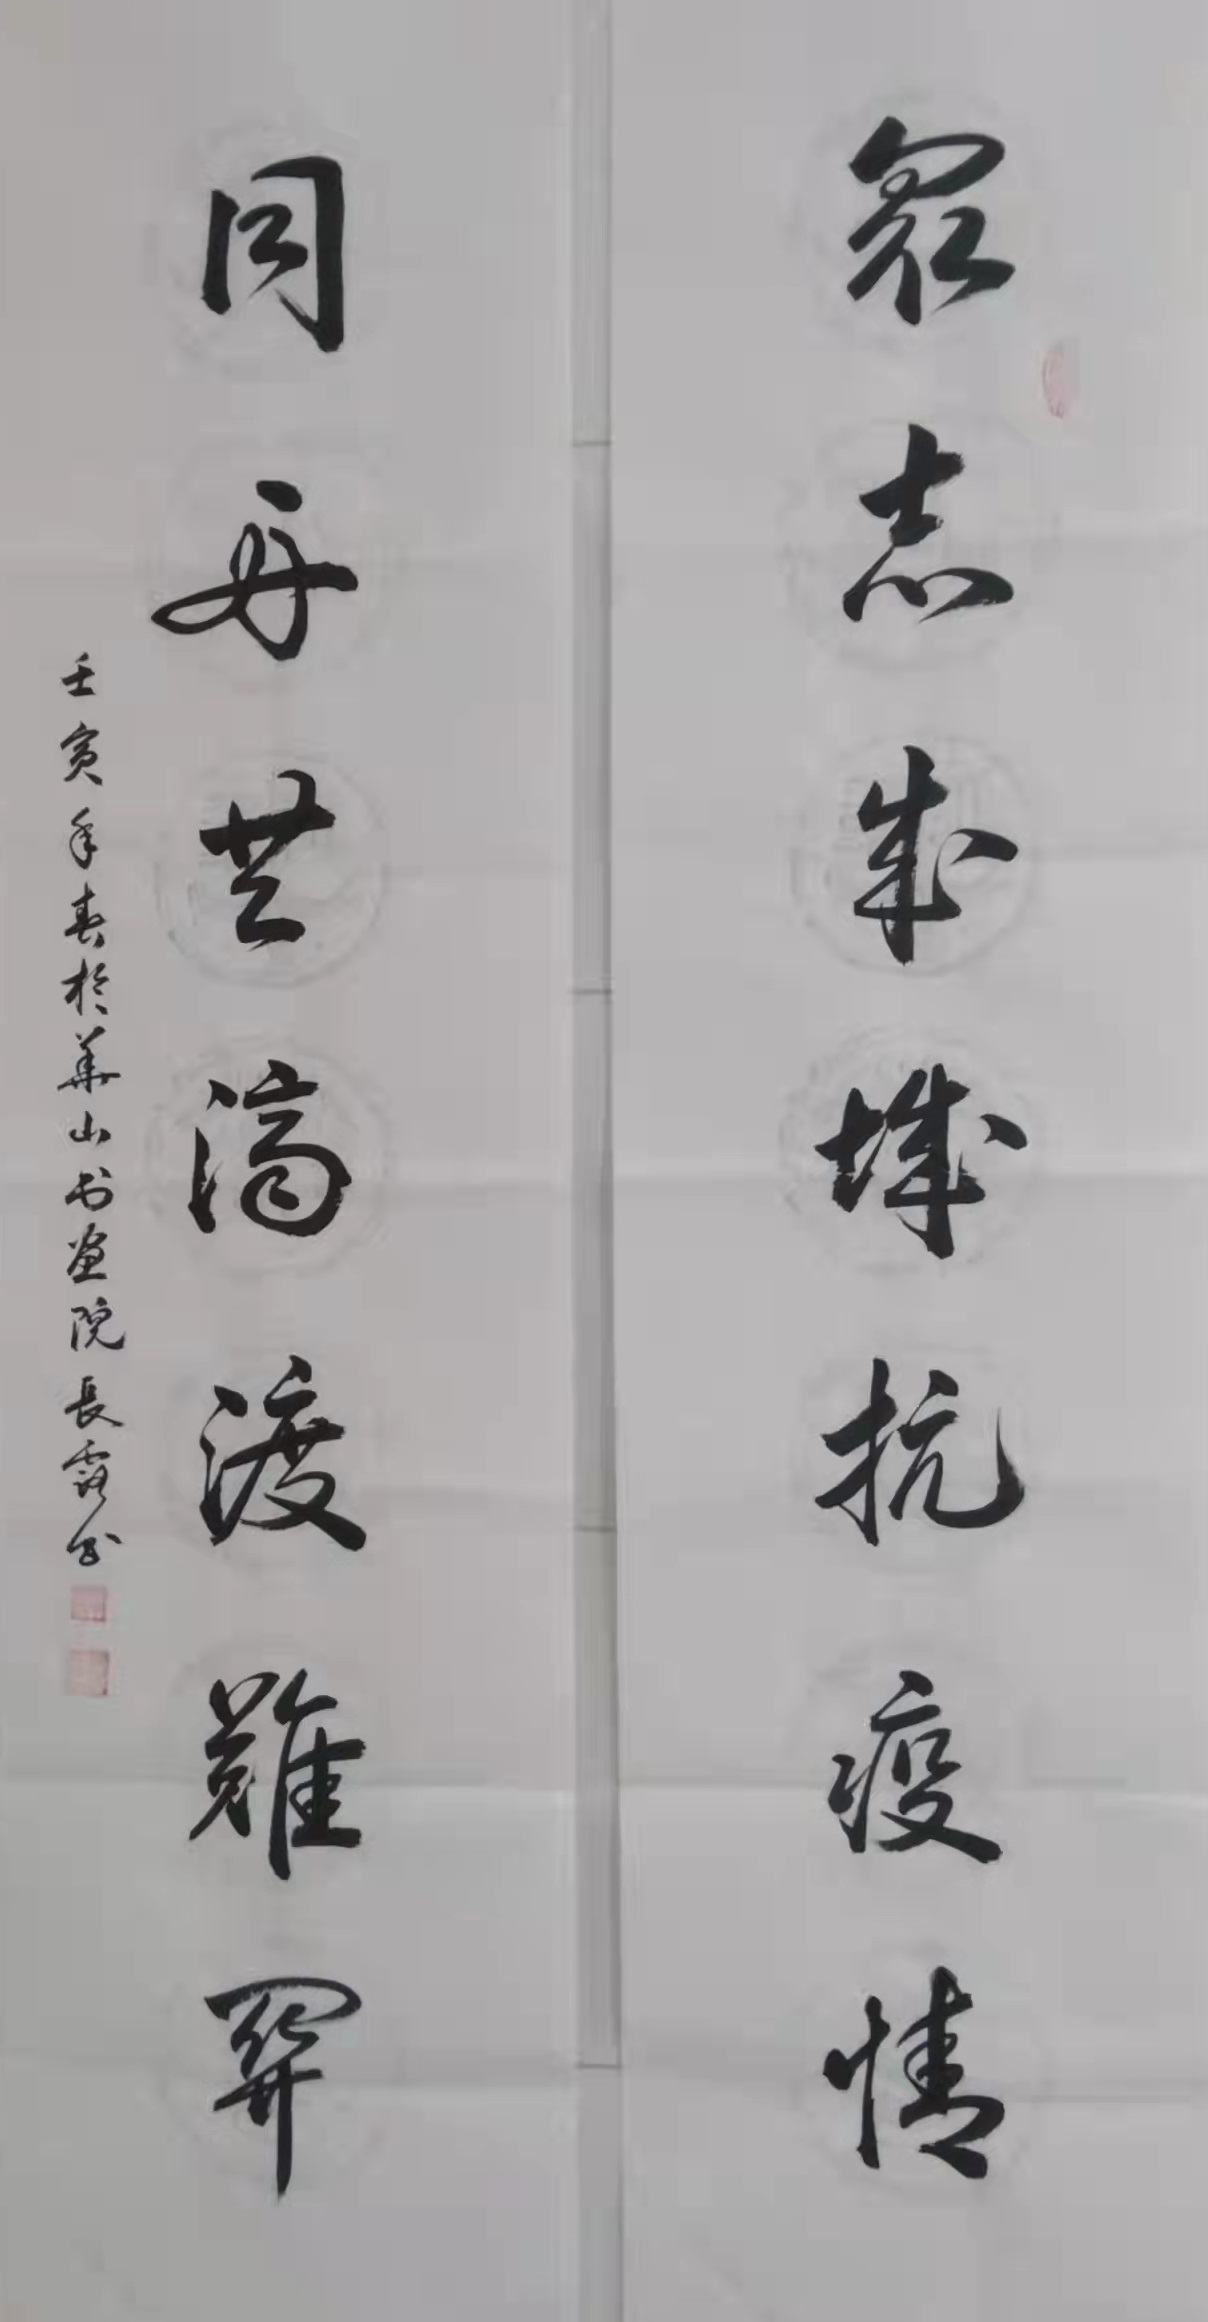 眾志成城抗疫情
同舟共濟渡難關
壬寅年春於華山书畫院長霞书